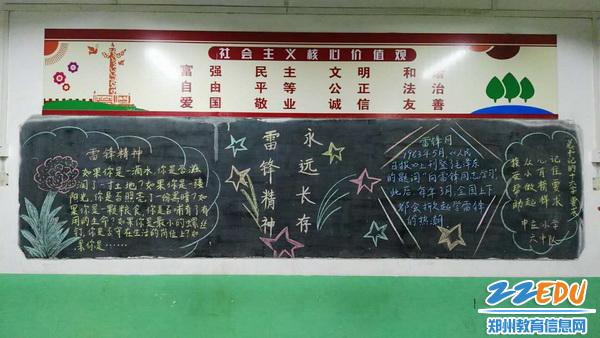 社会主义核心价值观
富强 民主 文明 和谐
自由 平等 公正 法治
爱国 敬业 诚信 友善
雷锋精神
如果你是一滴水,你是否滋
润了一寸土地?如果你是一缕
阳光,你是否照亮了一份黑暗?如
果你是一颗粮食,你是否哺育了有
用的生命?如果你是最小的螺丝
钉,你是否守在生活的岗位上?如
果你是……
永远长存
雷锋精神
雷锋月
1963年3月人民
日报上刊登毛泽东
的题词“向雷锋同志学习”
此后每年3月,全国上下
都会掀起学雷锋
的热潮
记住要求
心有榜样
从小做起
接受帮助
中立小学
六中队
22EDU
郑州教育信息网